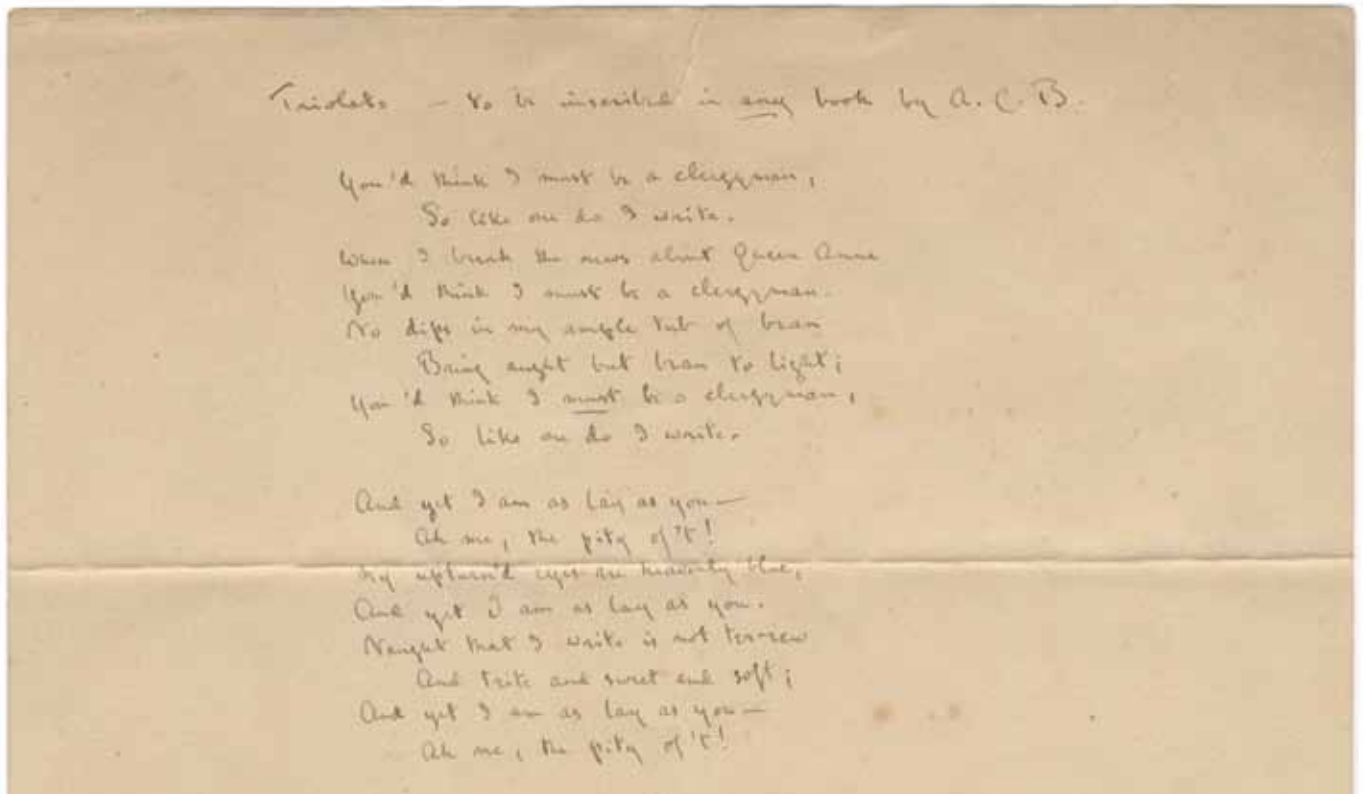 Triolets — to be inscribed in any book by A. C. B.
You'd think I must be a clergyman,
So like one do I write.
When I break the news about Queen Anne
You'd think I must be a clergyman.
No dips in my ample tub of bran
Bring aught but bran to light;
You'd think I must be a clergyman,
So like one do I write.
And yet I am as lay as you—
Ah me, the pity of 't!
My upturn'd eyes are heavenly blue,
And yet I am as lay as you.
Naught that I write is not
And trite and sweet and soft;
And yet I am as lay as you—
Ah me, the pity of 't!